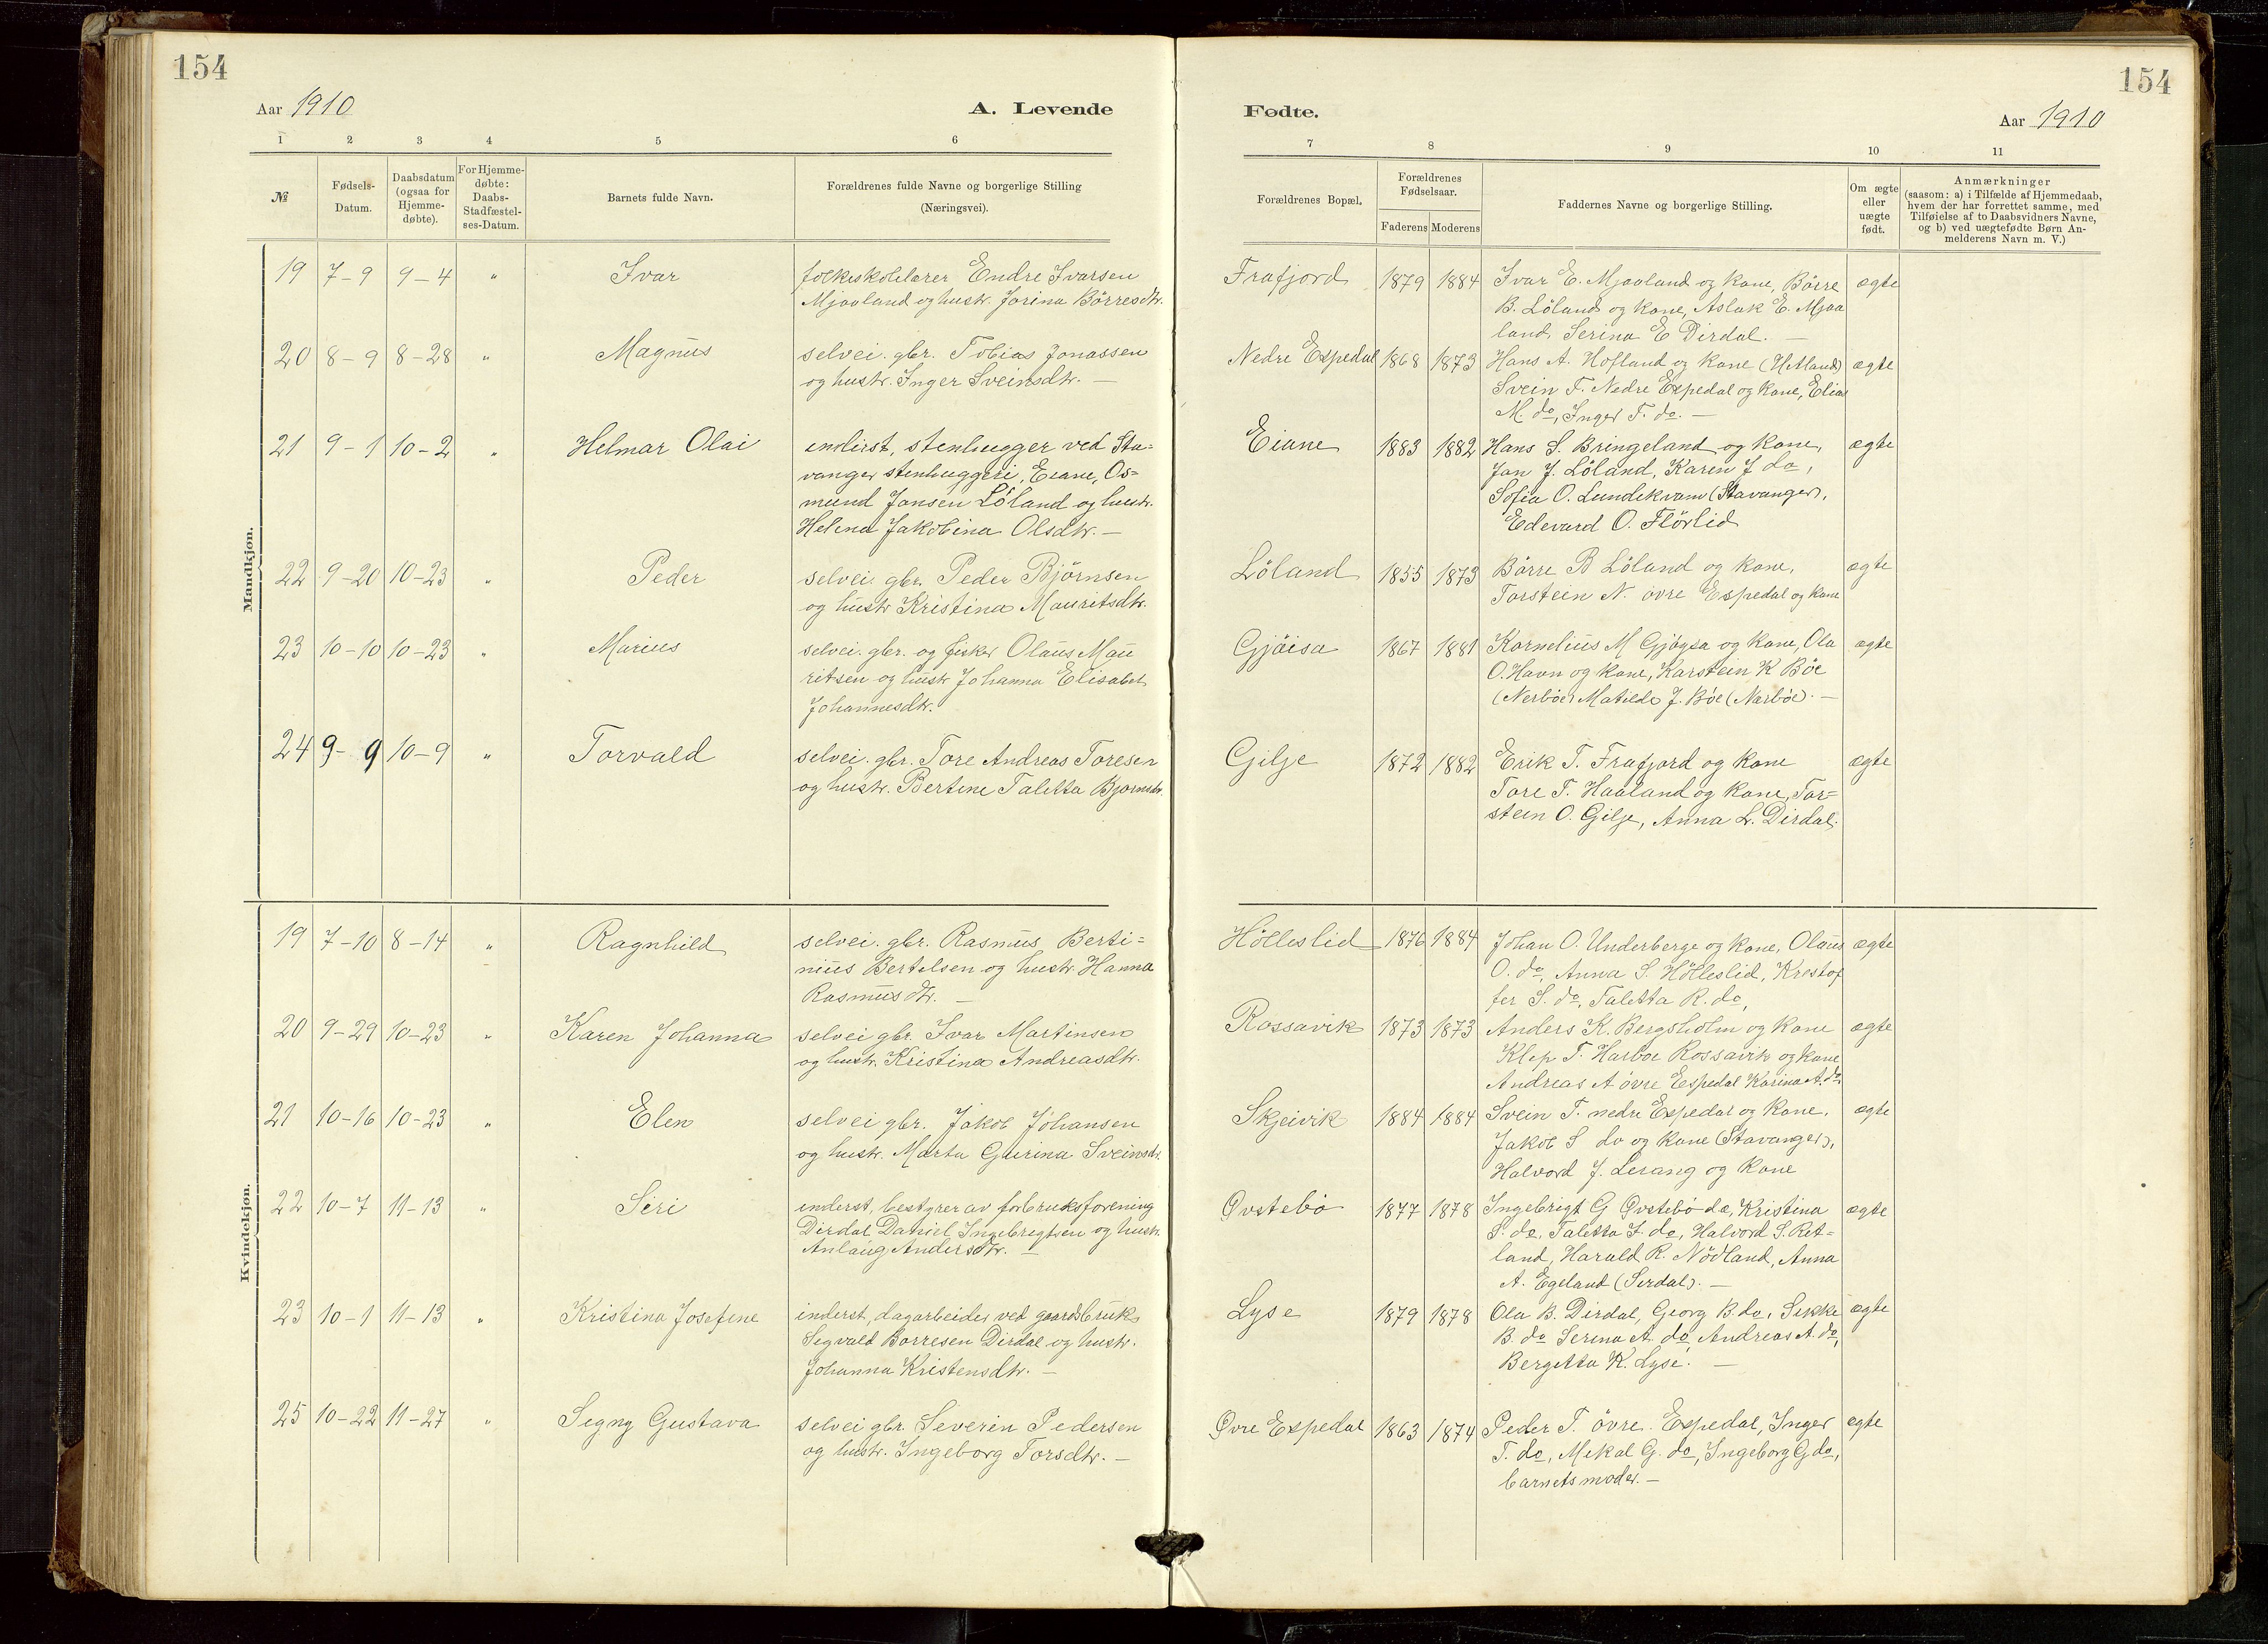 154
Aar 1910
A. Levende
1 2 3 4 5 6
№
Fødsels-
Datum.
Daabsdatum
(ogsaa for
Hjemme-
døbte).
For Hjemme-
døbte:
Daabs-
Stadfæstel-
ses-Datum.
Barnets fulde Navn.
Forældrenes fulde Navne og borgerlige Stilling
(Næringsvei).
Mandkjøn.
19 7-9 9-4 " Ivar
folkeskolelærer Endre Ivarsen
Mjaaland og hustr. Jorina Börresdtr.
20 8-9 8-28 " Magnus
selvei. gbr. Tobias Jonassen
og hustr. Inger Sveinsdtr. —
21 9-1 10-2 " Helmar Olai
inderst, stenhugger ved Sta-
vanger stenhuggeri, Eiane, Os-
mund Jansen Löland og hustr.
Helena Jakobina Olsdtr. —
22 9-20 10-23 " Peder
selvei. gbr. Peder Bjørnsen
og hustr Kristina Mauritsdtr.
23 10-10 10-23 " Marius
selvei. gbr. og fisker Olaus Mau
ritsen og hustr Johanna Elisabet
Johannesdtr.
24 9-9 10-9 " Torvald
selvei. gbr. Tore Andreas Toresen
og hustr. Bertine Taletta Bjornsdtr.
Kvindekjøn.
19 7-10 8-14 " Ragnhild
selvei. gbr. Rasmus Berti=
nius Bertelsen og hustr. Hanna
Rasmusdtr. —
20 9-29 10-23 " Karen Johanna
selvei gbr. Ivar Martinsen
og hustr. Kristina Andreasdtr.
21 10-16 10-23 " Elen
selvei gbr. Jakob Johansen
og hustr. Marta Gurina Sveinsdtr.
22 10-7 11-13 " Siri
inderst, bestyrer av forbruksforening
Dirdal Daniel Ingebrigtsen og hustr.
Anlaug Andersdtr. —
23 10-1 11-13 " Kristina Josefine
inderst, dagarbeider ved gaardsbruk
Segvald Borresen Dirdal og hustr.
Johanna Kristensdtr. —
25 10-22 11-27 " Segny Gustava
selvei gbr. Severin Pedersen
og hustr. Ingeborg Torsdtr. —
154
Fødte.
Aar 1910
7 8 9 10 11
Forældrenes Bopæl.
Forældrenes
Fødselsaar.
Faderens Moderens
Faddernes Navne og borgerlige Stilling.
Om ægte
eller
uægte
født.
Anmærkninger
(saasom: a) i Tilfælde af Hjemmedaab,
hvem der har forrettet samme, med
Tilføielse af to Daabsvidners Navne,
og b) ved uægtefødte Børn An-
melderens Navn m. V.)
Frafjord 1879 1884 Ivar E. Mjaaland og kone, Börre ægte
B. Löland og kone, Aslak E. Mjaa
land, Serina E Dirdal. —
Nedre Espedal 1868 1873 Hans A. Hofland og kone (Hetland) ægte
Svein T. Nedre Espedal og kone, Elias
M. do, Inger T. do. —
Eiane 1883 1882 Hans S. Bringeland og kone, ægte
Jan J. Löland, Karen J do,
Sofia O. Lundekvam (Stavanger),
Edevard O. Flörlid
Löland 1855 1873 Börre B Löland og kone, ægte
Torstein N. övre Espedal og kone
Gjöisa 1867 1881 Kornelius M Gjöysa og kone, Ola ægte
O. Havn og kone, Karstein K Böe
(Nerböe) Matilde J. Böe (Nærböe). —
Gilje 1872 1882 Erik T. Frafjord og kone ægte
Tore T. Haaland og kone, Tor=
stein O. Gilje, Anna L. Dirdal.
Hölleslid 1876 1884 Johan O. Underberge og kone, Olaus ægte
O. do, Anna S. Hölleslid, Krestof
fer S. do, Taletta R. do,
Rossavik 1873 1873 Anders K. Bergsholm og kone ægte
Klep T. Harboe Rossavik og kone
Andreas A övre Espedal Karina A. do
Skjeivik 1884 1884 Svein T. nedre Espedal og kone, ægte
Jakob S do og kone (Stavanger),
Halvord J. Lerang og kone
Øvstebö 1877 1878 Ingebrigt G Øvstebö do, Kristina ægte
S. do, Taletta I. do, Halvord S. Ret=
land, Harald R. Nödland, Anna
A. Egeland (Sirdal). —
Lyse 1879 1878 Ola B. Dirdal, Georg B. do, Sekke ægte
B. do Serina A. do, Andreas A. do,
Bergetta K. Lyse. —
Øvre Espedal 1863 1874 Peder T. övre Espedal, Inger ægte
T. do, Mekal G. do, Ingeborg G. do,
barnets moder. —